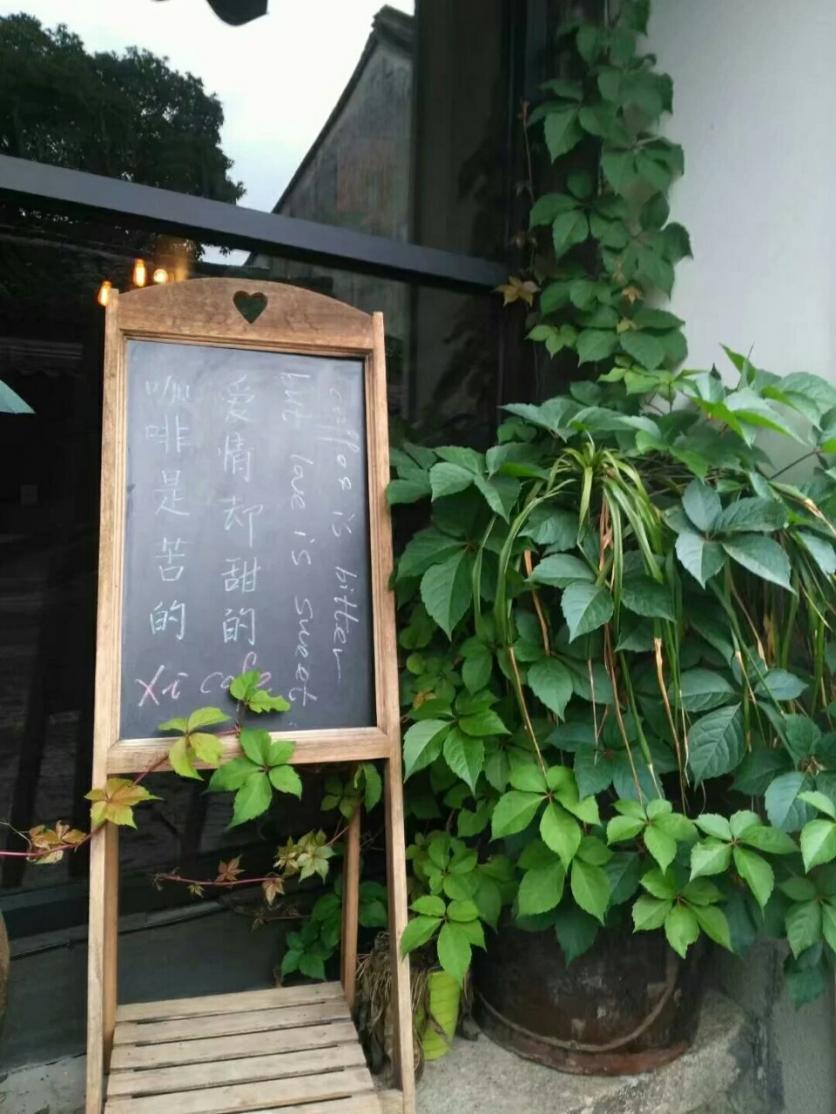 咖啡是苦的
爱情却甜的
but love is sweet.
coffee is bitter
Xi cafe